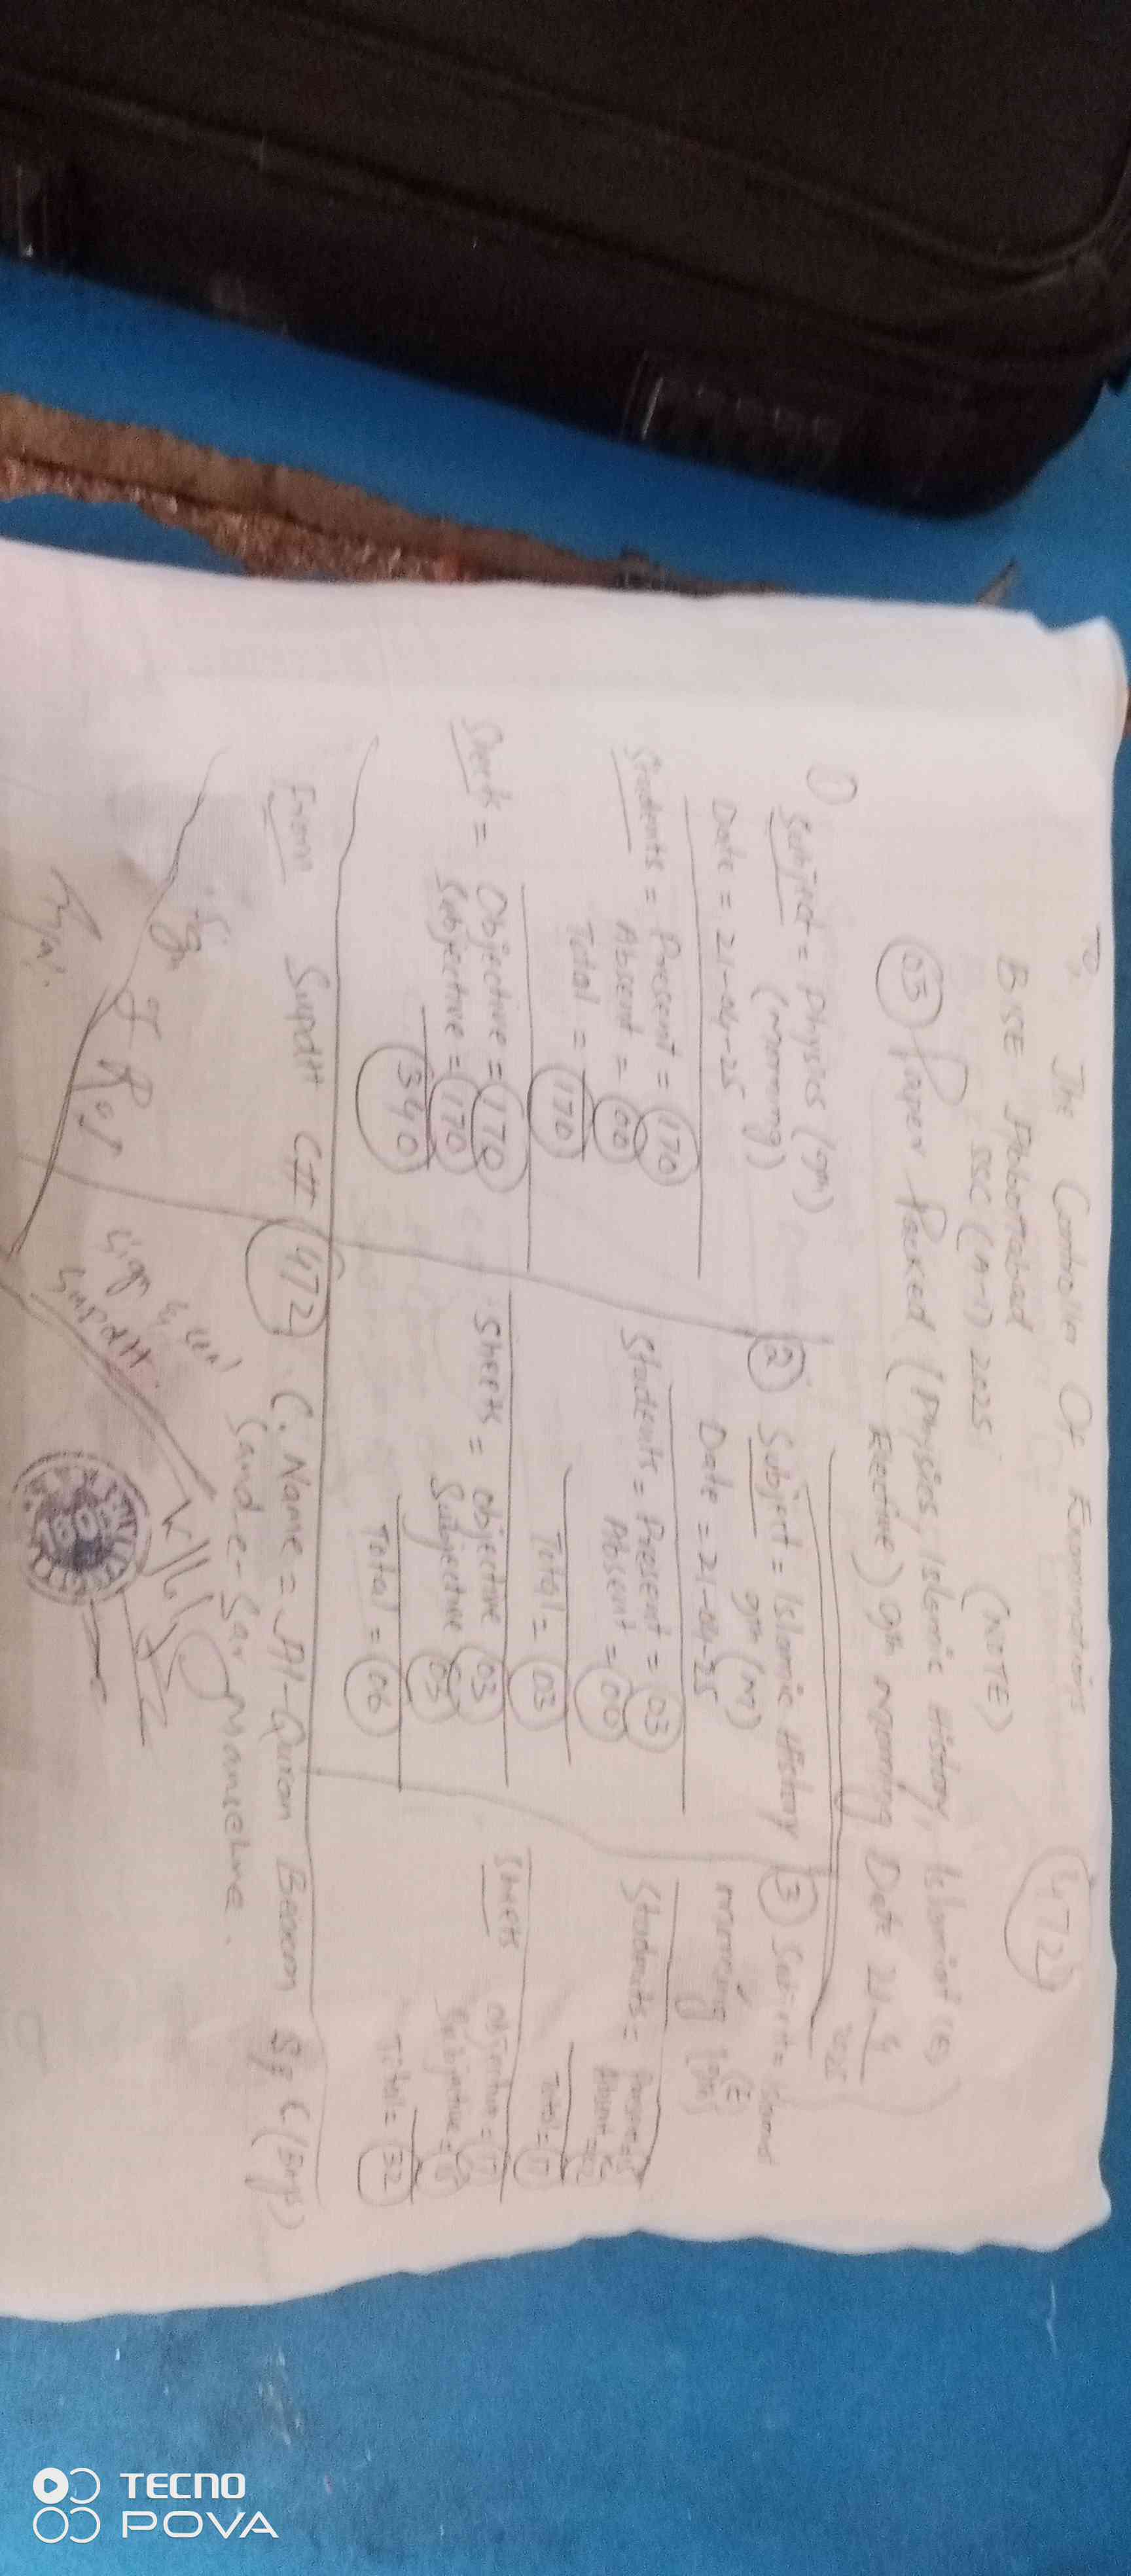 To, The Controller Of Examinations
472
BISE Abbottabad (NOTE)
SSC (A-I) 2025
03 Paper Packed (Physics, Islamic History, Islamiat (E)
Elective) 9th morning Date 21-4
2025
1 Subject = Physics (9th)
(morning)
Date = 21-04-25
Students = Present = 170
Absent = 00
Total = 170
Sheets = Objective = 170
Subjective = 170
340
2 Subject = Islamic History
9th (M)
Date = 21-04-25
Students = Present = 03
Absent = 00
Total = 03
Sheets = objective 03
Subjective 03
Total = 06
3
morning (E)
(9th)
Students =
Total =
Sheets objective =
Subjective =
Total = 32
From Supdtt C# 472 C. Name = Al-Quran
Mansehra.
Sign of
Sign of
Supdtt.
TECNO
POVA